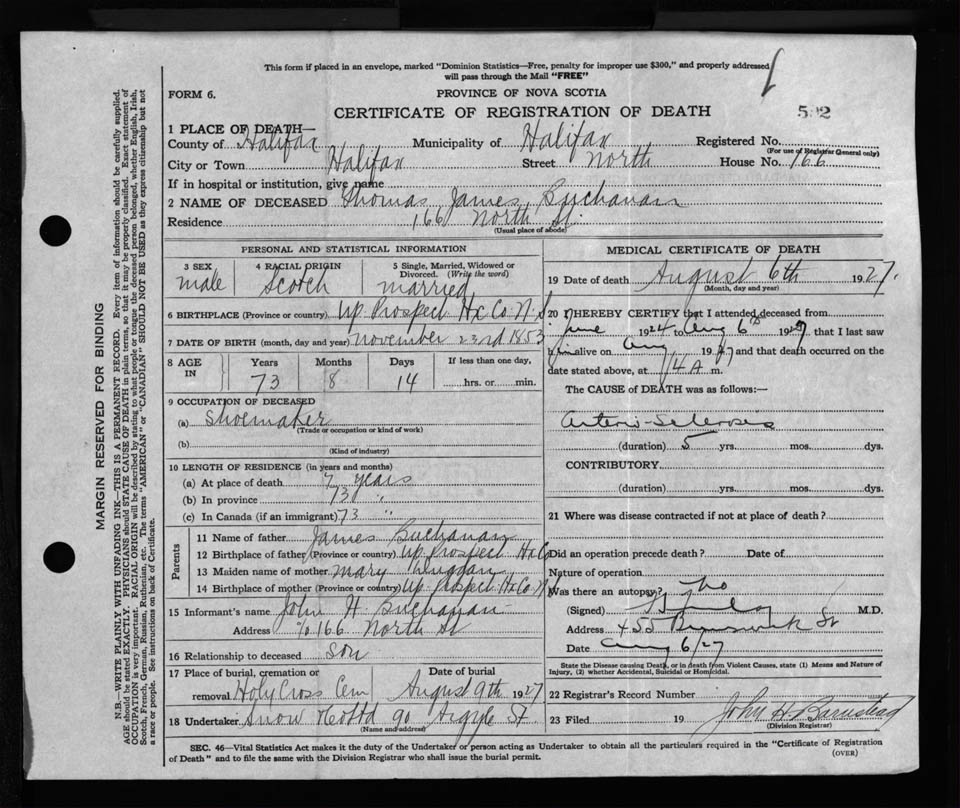 This form if placed in an envelope, marked "Dominion Statistics—Free, penalty for improper use $300," and properly addressed
will pass through the Mail "FREE"
FORM 6.
PROVINCE OF NOVA SCOTIA
CERTIFICATE OF REGISTRATION OF DEATH
592
1 PLACE OF DEATH—
County of Halifax Municipality of Halifax Registered No.
(For use of Registrar General only)
City or Town Halifax Street North House No. 166
If in hospital or institution, give name
2 NAME OF DECEASED Thomas James Buchanan
Residence 166 North St.
(Usual place of abode)
PERSONAL AND STATISTICAL INFORMATION
3 SEX
male
4 RACIAL ORIGIN
Scotch
5 Single, Married, Widowed or Divorced. (Write the word)
married
6 BIRTHPLACE (Province or country) Up. Prospect Hx Co. N.S
7 DATE OF BIRTH (month, day and year) November 23rd 1853
8 AGE IN
Years 73
Months 8
Days 14
If less than one day,
hrs. or min.
9 OCCUPATION OF DECEASED
(a) Shoemaker
(Trade or occupation or kind of work)
(b)
(Kind of industry)
10 LENGTH OF RESIDENCE (in years and months)
(a) At place of death 7 years
(b) In province 73 "
(c) In Canada (if an immigrant) 73 "
Parents
11 Name of father James Buchanan
12 Birthplace of father (Province or country) Up. Prospect Hx Co
13 Maiden name of mother Mary
14 Birthplace of mother (Province or country) Up. Prospect Hx Co N.S
15 Informant's name John H Buchanan
Address % 166 North St
16 Relationship to deceased son
17 Place of burial, cremation or removal Holy Cross Cem
Date of burial August 9th 1927
18 Undertaker Snow & Co Ltd 90 Argyle St.
(Name and address)
MEDICAL CERTIFICATE OF DEATH
19 Date of death August 6th 1927.
(Month, day and year)
20 I HEREBY CERTIFY that I attended deceased from
June 1924 to Aug 6th 1927, that I last saw
him alive on Aug 1927 and that death occurred on the
date stated above, at 4 A m.
The CAUSE of DEATH was as follows:—
Arterio-Sclerosis
(duration) 5 yrs. mos. dys.
CONTRIBUTORY
(duration) yrs. mos. dys.
21 Where was disease contracted if not at place of death?
Did an operation precede death? Date of
Nature of operation
Was there an autopsy? No
(Signed) M.D.
Address 455 Brunswick St
Date Aug 6/27
State the Disease causing Death, or in death from Violent Causes, state (1) Means and Nature of
Injury, (2) whether Accidental, Suicidal or Homicidal.
22 Registrar's Record Number
23 Filed 19 John H Barnstead
(Division Registrar)
SEC. 46—Vital Statistics Act makes it the duty of the Undertaker or person acting as Undertaker to obtain all the particulars required in the "Certificate of Registration
of Death" and to file the same with the Division Registrar who shall issue the burial permit.
(OVER)
MARGIN RESERVED FOR BINDING
N.B.—WRITE PLAINLY WITH UNFADING INK—THIS IS A PERMANENT RECORD. Every item of information should be carefully supplied.
AGE should be stated EXACTLY. PHYSICIANS should STATE CAUSE OF DEATH in plain terms, so that it may be properly classified. Exact statement of
OCCUPATION is very important. RACIAL ORIGIN will be described by stating to what people or tongue the deceased person belonged, whether English, Irish,
Scotch, French, German, Russian, Ruthenian, etc. The terms "AMERICAN" or "CANADIAN" SHOULD NOT BE USED as they express citizenship but not
a race or people. See instructions on back of Certificate.